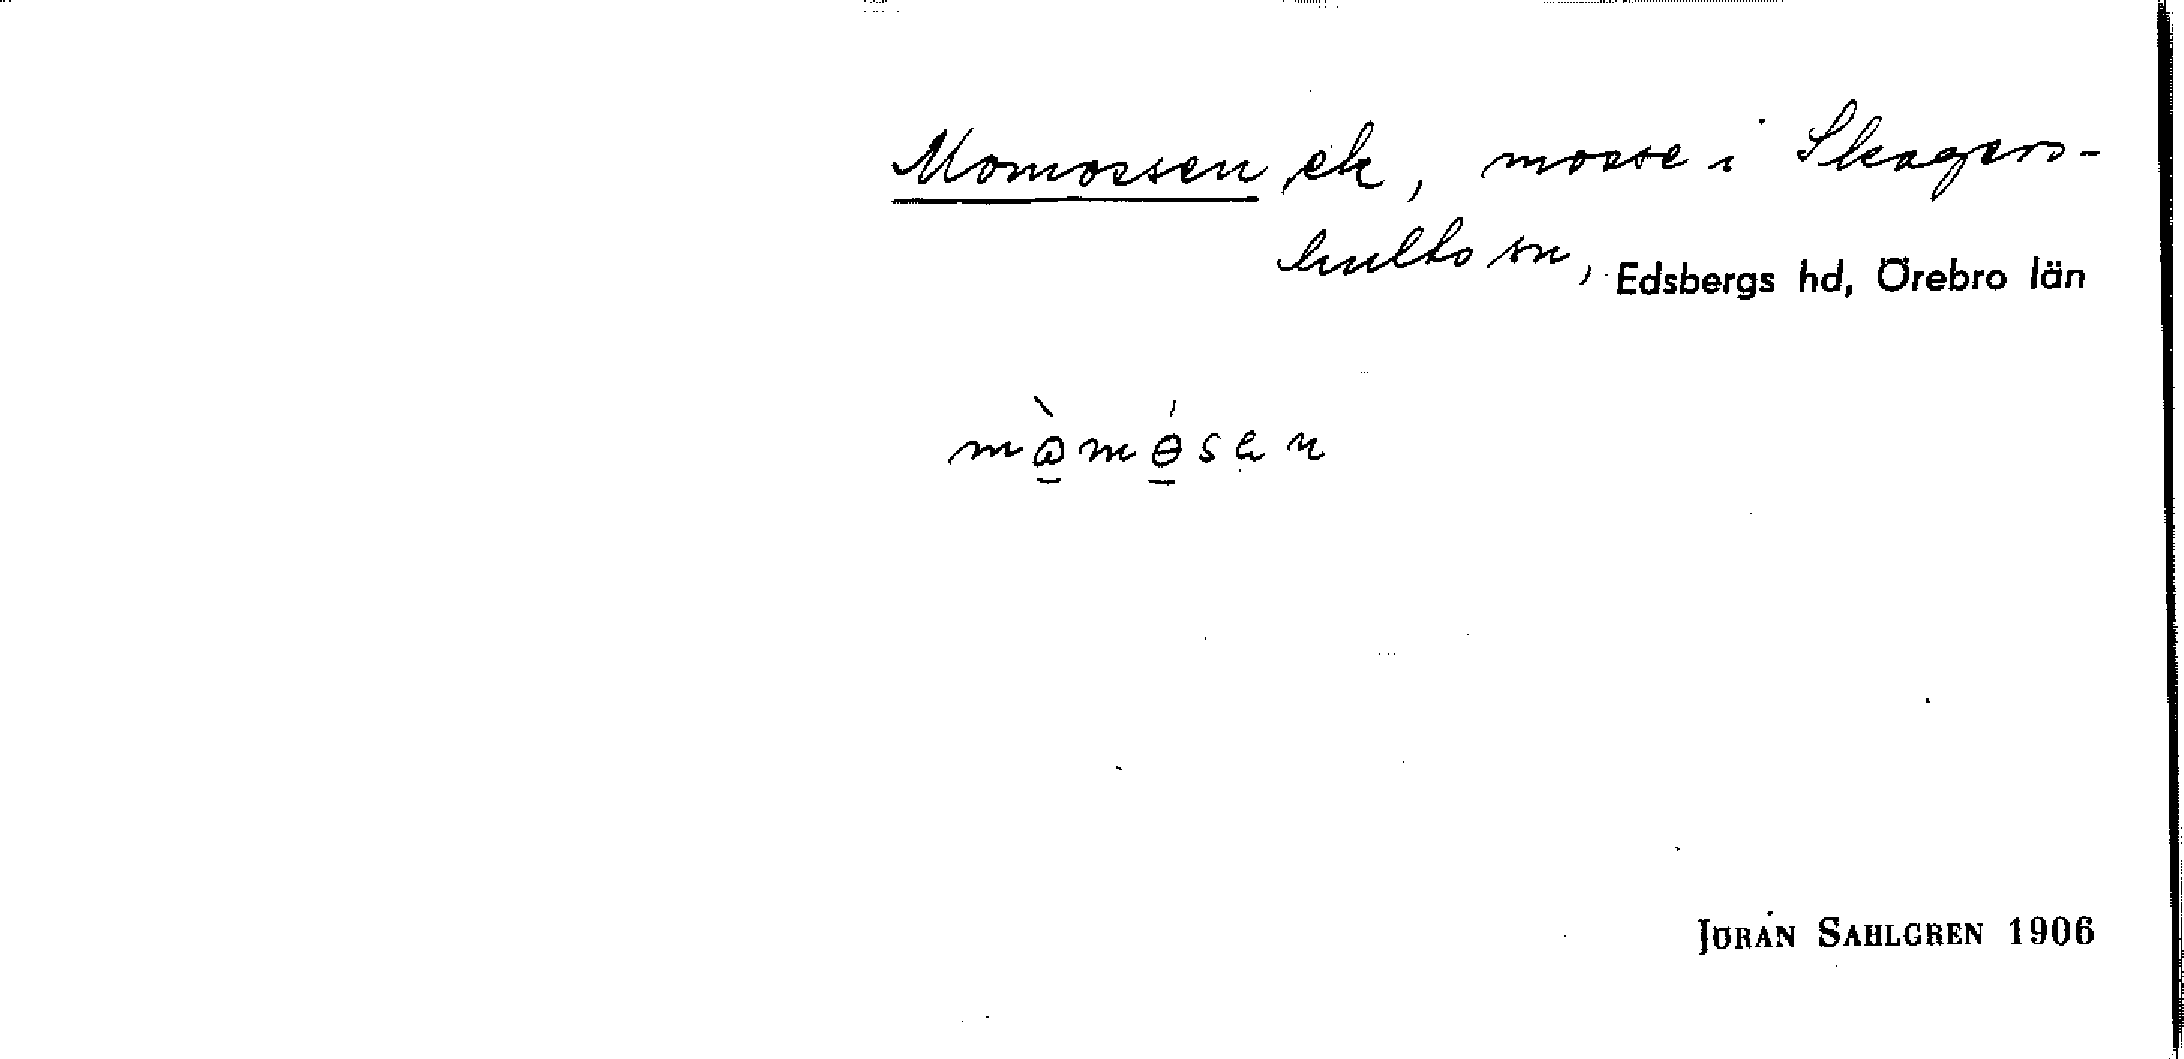 Momossen ek, mosse i Skagers-
hults sn, Edsbergs hd, Örebro län
mòmósen
JÖRAN SAHLGREN 1906